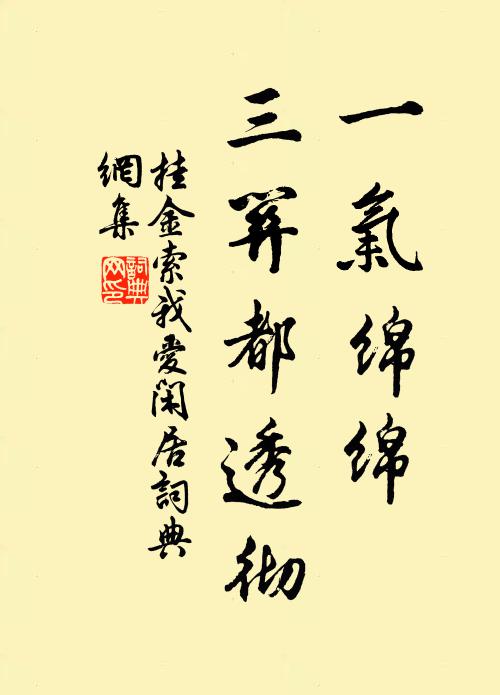 一氣綿綿
三關都透彻
挂金索我愛閑居詞典
網集
詞典
网印